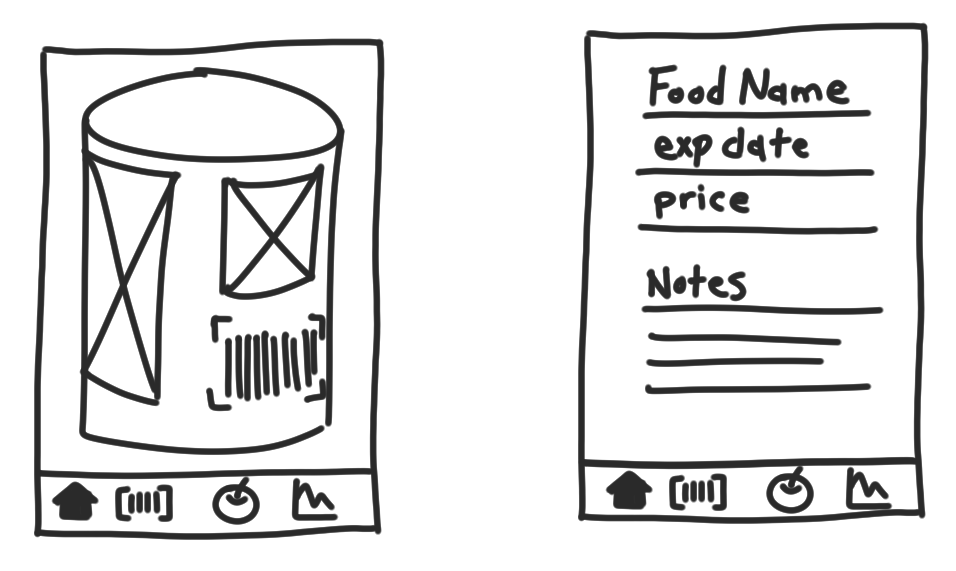 Food Name
exp date
price
Notes